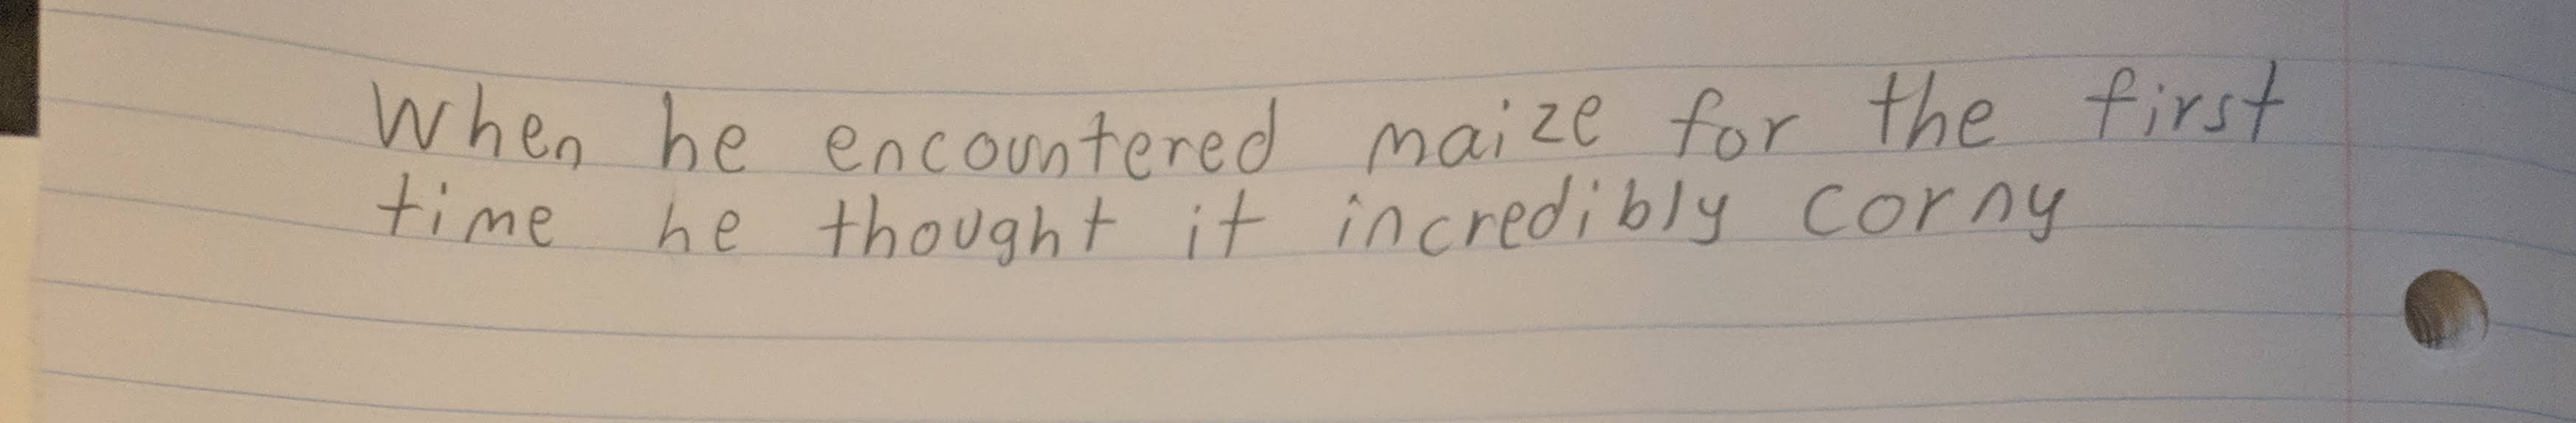 When he encountered maize for the first
time he thought it incredibly corny